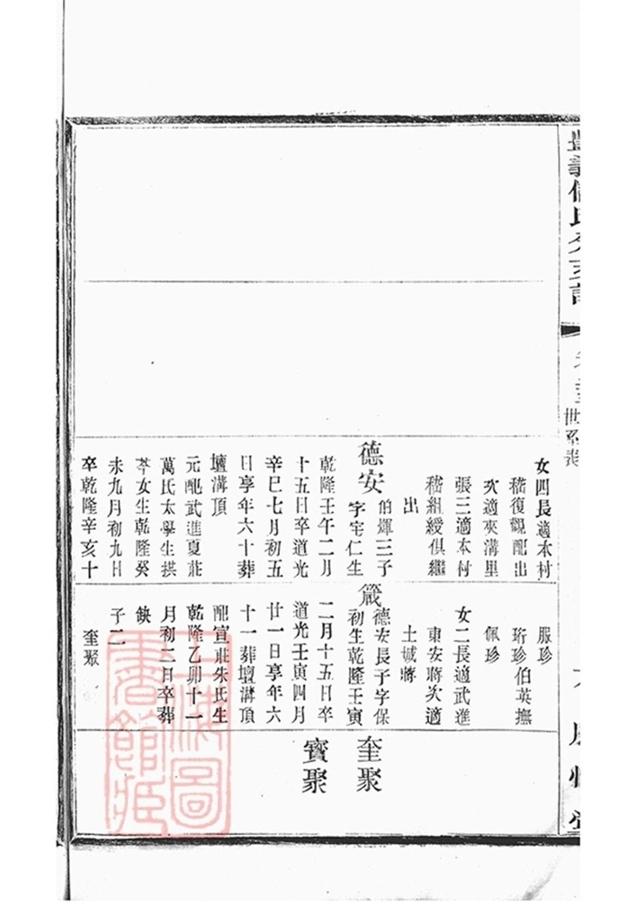 世系表
女四長適本村
嵇復觀配出
次適夾溝里
張三適本村
嵇組綬俱繼
出
德安
的煇三子
字宅仁生
乾隆壬午二月
十五日卒道光
辛巳七月初五
日享年六十葬
壇溝頂
元配武進夏莊
萬氏太學生拱
苓女生乾隆癸
未九月初九日
卒乾隆辛亥十
服珍
珩珍伯英撫
佩珍
女二長適武進
東安蔣次適
土城蔣
箴
德安長子字保
初生乾隆壬寅
二月十五日卒
道光壬寅四月
廿一日享年六
十一葬壇溝頂
配宜莊朱氏生
乾隆乙卯十一
月初二日卒葬
缺
子二
奎聚
奎聚
寶聚